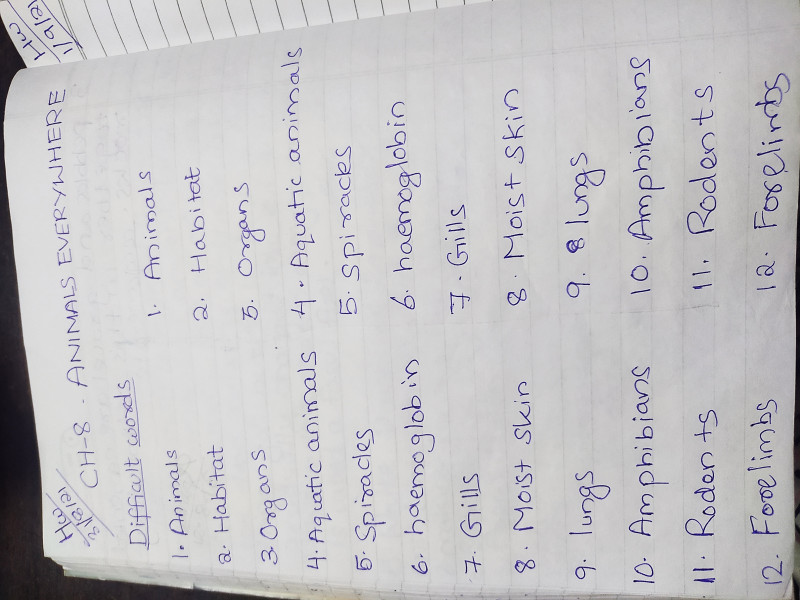 HW
1/9/21
HW
CH-8. ANIMALS EVERYWHERE
Difficult words
1. Animals
2. Habitat
3. Organs
4. Aquatic animals
5. Spiracles
6. haemoglobin
7. Gills
8. Moist skin
9. lungs
10. Amphibians
11. Rodents
12. Forelimbs
1. Animals
2. Habitat
3. Organs
4. Aquatic animals
5. Spiracks
6. haemoglobin
7. Gills
8. Moist skin
9. lungs
10. Amphibians
11. Rodents
12. Forelimbs